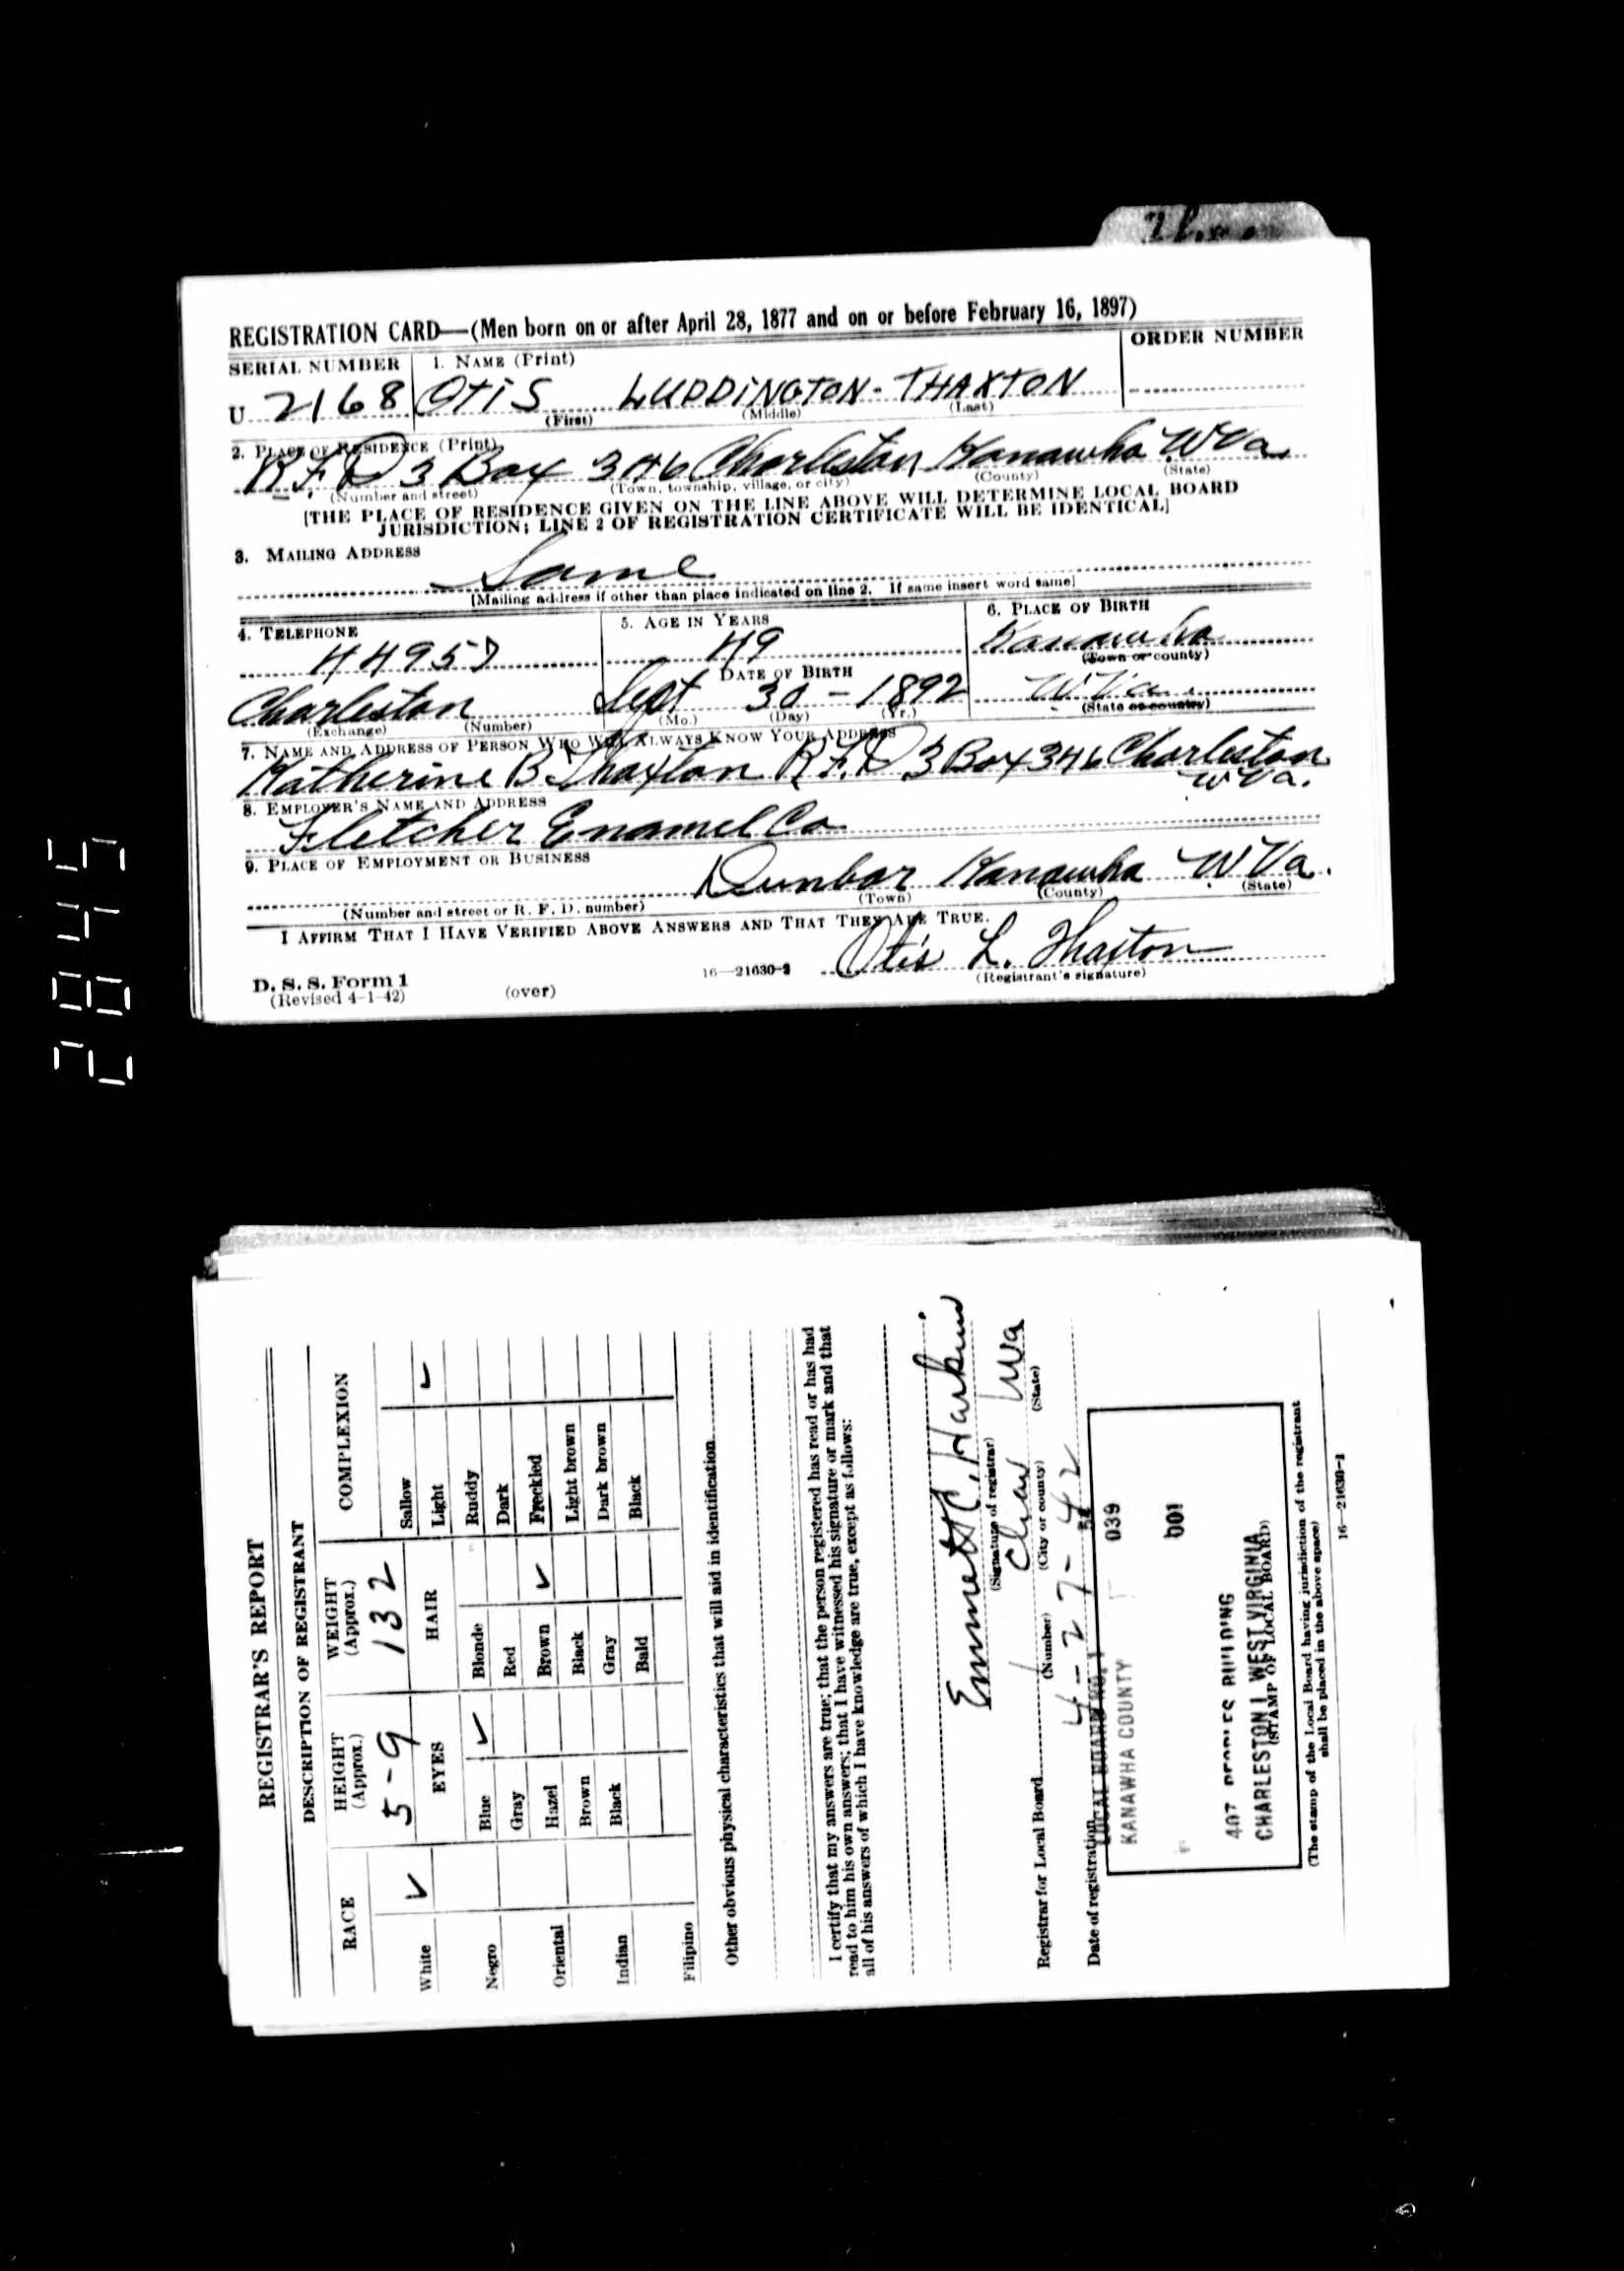 REGISTRATION CARD—(Men born on or after April 28, 1877 and on or before February 16, 1897)
SERIAL NUMBER 1. NAME (Print) ORDER NUMBER
U 2168 OTIS LUDDINGTON - THAXTON
(First) (Middle) (Last)
2. PLACE OF RESIDENCE (Print)
R.F.D 3 Box 346 Charleston Kanawha W Va
(Number and street) (Town, township, village, or city) (County) (State)
[THE PLACE OF RESIDENCE GIVEN ON THE LINE ABOVE WILL DETERMINE LOCAL BOARD
JURISDICTION; LINE 2 OF REGISTRATION CERTIFICATE WILL BE IDENTICAL]
3. MAILING ADDRESS
Same
[Mailing address if other than place indicated on line 2. If same insert word same]
4. TELEPHONE 5. AGE IN YEARS 6. PLACE OF BIRTH
44957 49 Kanawha
DATE OF BIRTH (Town or county)
Charleston Sept 30 - 1892 W Va.
(Exchange) (Number) (Mo.) (Day) (Yr.) (State or country)
7. NAME AND ADDRESS OF PERSON WHO WILL ALWAYS KNOW YOUR ADDRESS
Katherine B Thaxton R.F.D 3 Box 346 Charleston
W Va.
8. EMPLOYER'S NAME AND ADDRESS
Fletcher Enamel Co
9. PLACE OF EMPLOYMENT OR BUSINESS
Dunbar Kanawha W Va.
(Number and street or R. F. D. number) (Town) (County) (State)
I AFFIRM THAT I HAVE VERIFIED ABOVE ANSWERS AND THAT THEY ARE TRUE.
Otis L. Thaxton
D. S. S. Form 1 16—21630-2 (Registrant's signature)
(Revised 4-1-42) (over)
2845
REGISTRAR'S REPORT
DESCRIPTION OF REGISTRANT
RACE HEIGHT (Approx.) WEIGHT (Approx.) COMPLEXION
5-9 132
EYES HAIR
White ✓ Blue ✓ Blonde Sallow
Light ✓
Negro Gray Red Ruddy
Dark
Oriental Hazel Brown ✓ Freckled
Brown Black Light brown
Indian Black Gray Dark brown
Bald Black
Filipino
Other obvious physical characteristics that will aid in identification
I certify that my answers are true; that the person registered has read or has had
read to him his own answers; that I have witnessed his signature or mark and that
all of his answers of which I have knowledge are true, except as follows:
Emmett C. Harkins
(Signature of registrar)
Registrar for Local Board 1 Chas WVa
(Number) (City or county) (State)
Date of registration 4-27-42
LOCAL BOARD NO. 1
KANAWHA COUNTY 039
001
407 PEOPLES BUILDING
CHARLESTON 1 WEST VIRGINIA
(STAMP OF LOCAL BOARD)
(The stamp of the Local Board having jurisdiction of the registrant
shall be placed in the above space)
16—21630-1